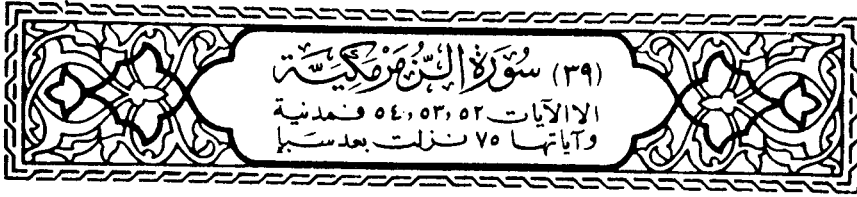 (٣٩) سُورَة الزُّمَر مَكِيَّة
الا الآيات ٥٢، ٥٣، ٥٤ فمدنية
وآياتها ٧٥ نزلت بعد سبإ